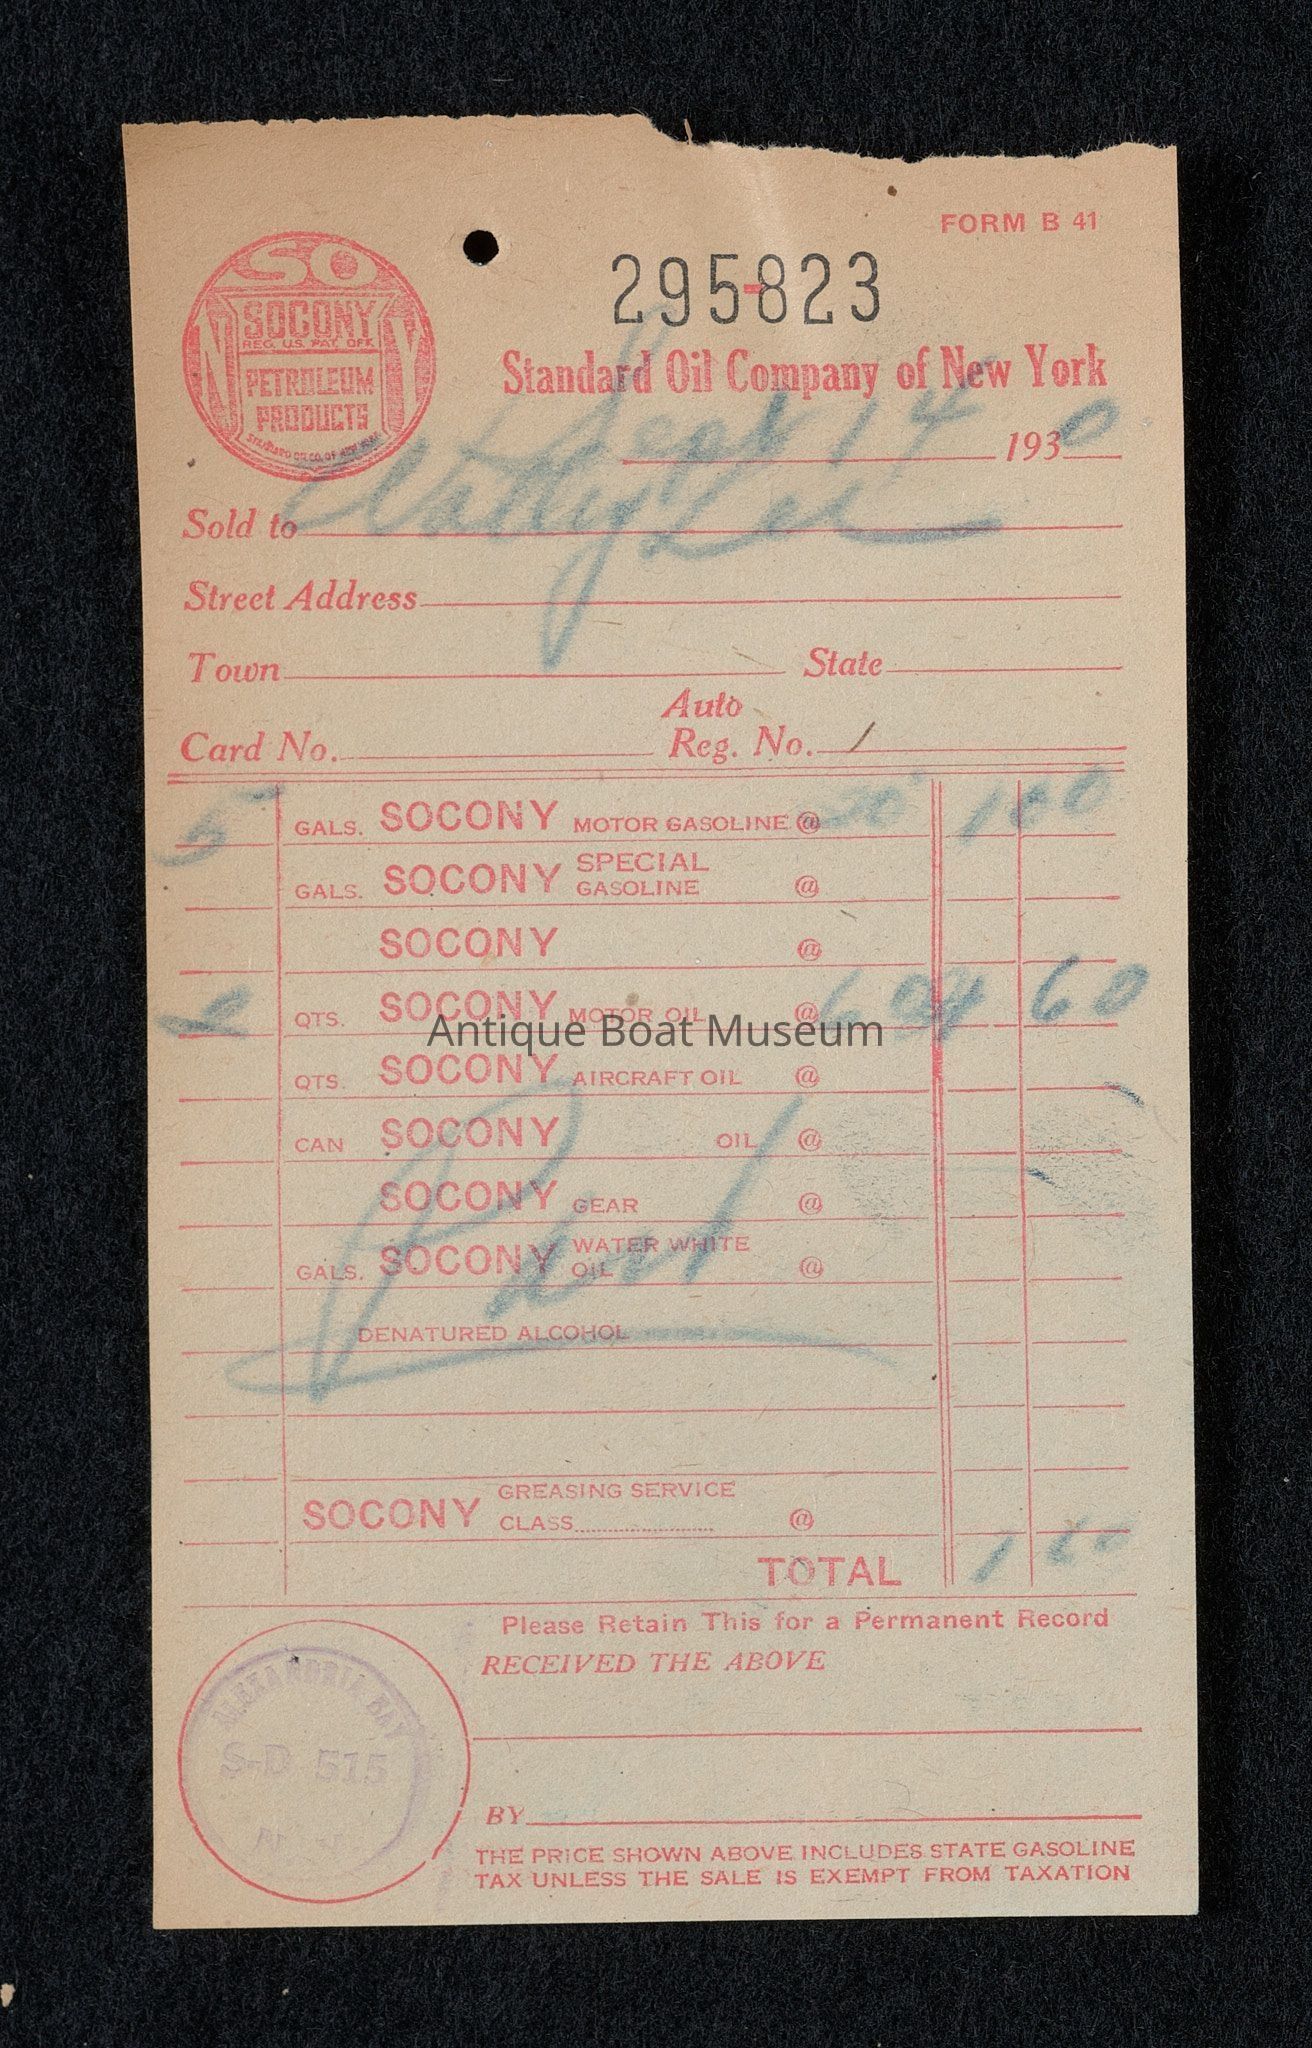 FORM B 41
295-823
SO
SOCONY
REG. U.S. PAT. OFF.
PETROLEUM
PRODUCTS
STANDARD OIL CO. OF NEW YORK
Standard Oil Company of New York
Sept 14 1930
Sold to
Street Address
Town State
Auto
Card No. Reg. No. 1
5 GALS. SOCONY MOTOR GASOLINE @ 20 1 00
GALS. SOCONY SPECIAL GASOLINE @
SOCONY @
2 QTS. SOCONY MOTOR OIL @ 60
Antique Boat Museum
QTS. SOCONY AIRCRAFT OIL @
CAN SOCONY OIL @
SOCONY GEAR @
GALS. SOCONY WATER WHITE OIL @
Paid
DENATURED ALCOHOL
SOCONY GREASING SERVICE CLASS @
TOTAL 1 60
Please Retain This for a Permanent Record
RECEIVED THE ABOVE
ALEXANDRIA BAY
S-D 515
BY
THE PRICE SHOWN ABOVE INCLUDES STATE GASOLINE
TAX UNLESS THE SALE IS EXEMPT FROM TAXATION